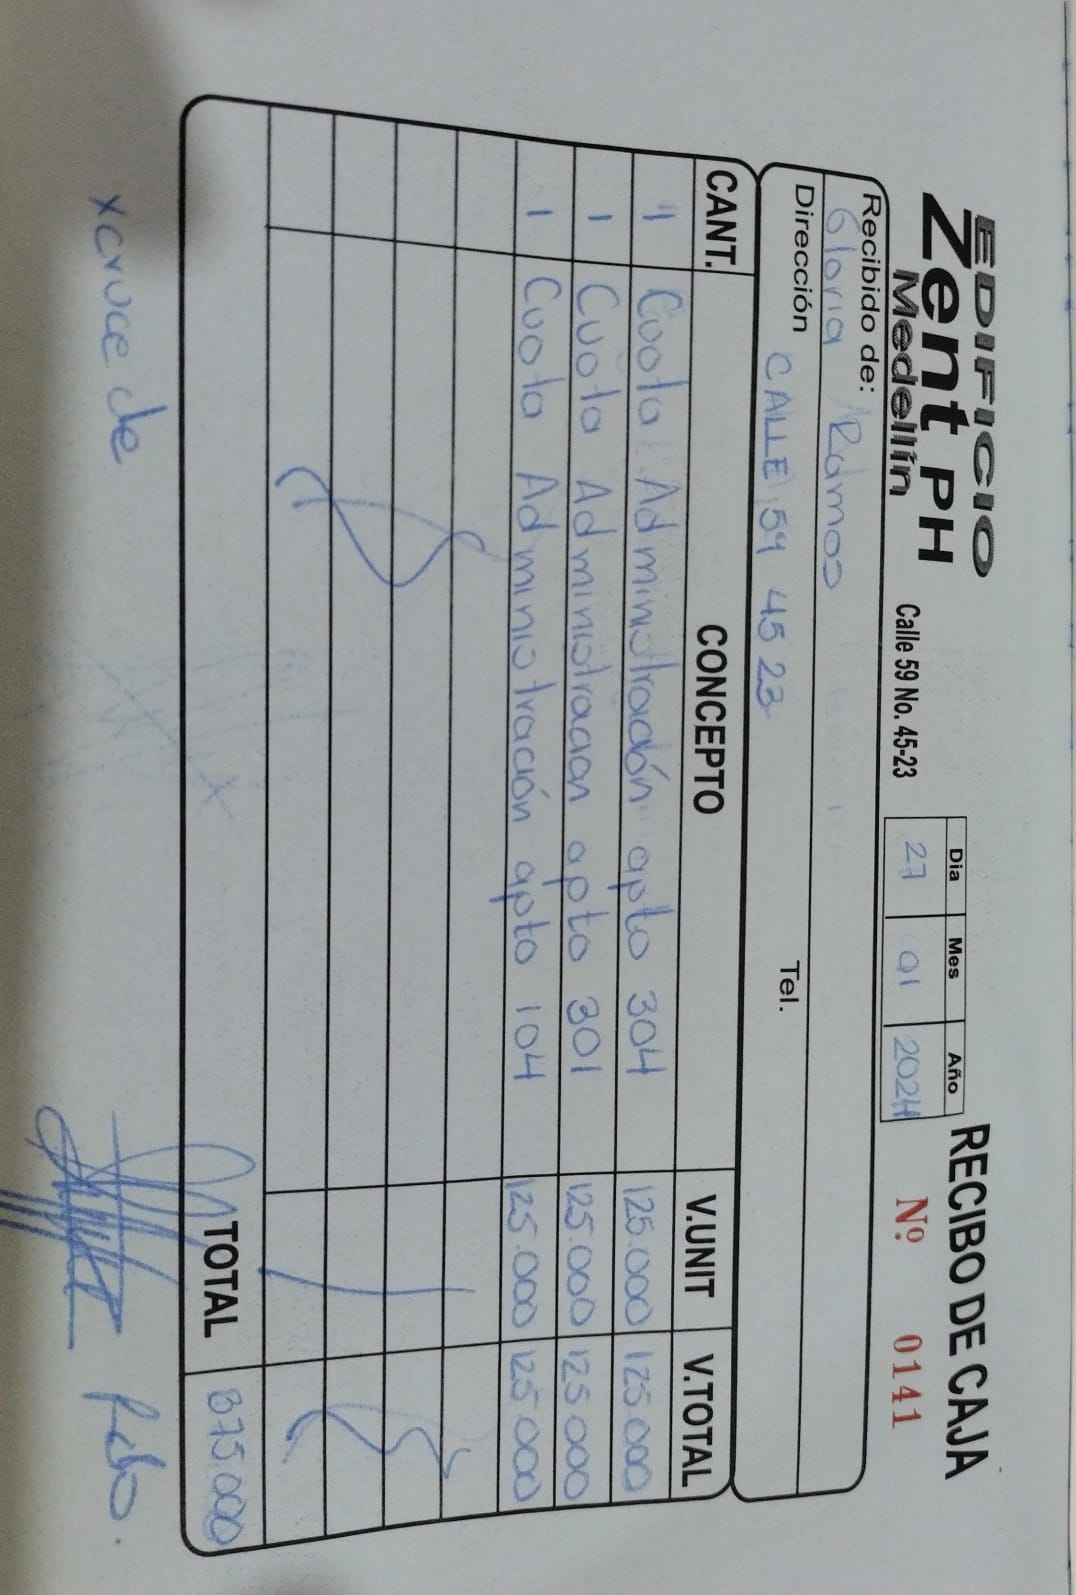 EDIFICIO
Zent PH
Medellín
Calle 59 No. 45-23
RECIBO DE CAJA
Dia Mes Año
27 01 2024
Nº 0141
Recibido de:
Gloria Ramos
Dirección CALLE 59 45 23 Tel.
CANT. CONCEPTO V.UNIT V.TOTAL
1 Cuota Administración apto 304 125.000 125.000
1 Cuota Administración apto 301 125.000 125.000
1 Cuota Administración apto 104 125.000 125.000
TOTAL 375.000
x cruce de
Rdo.